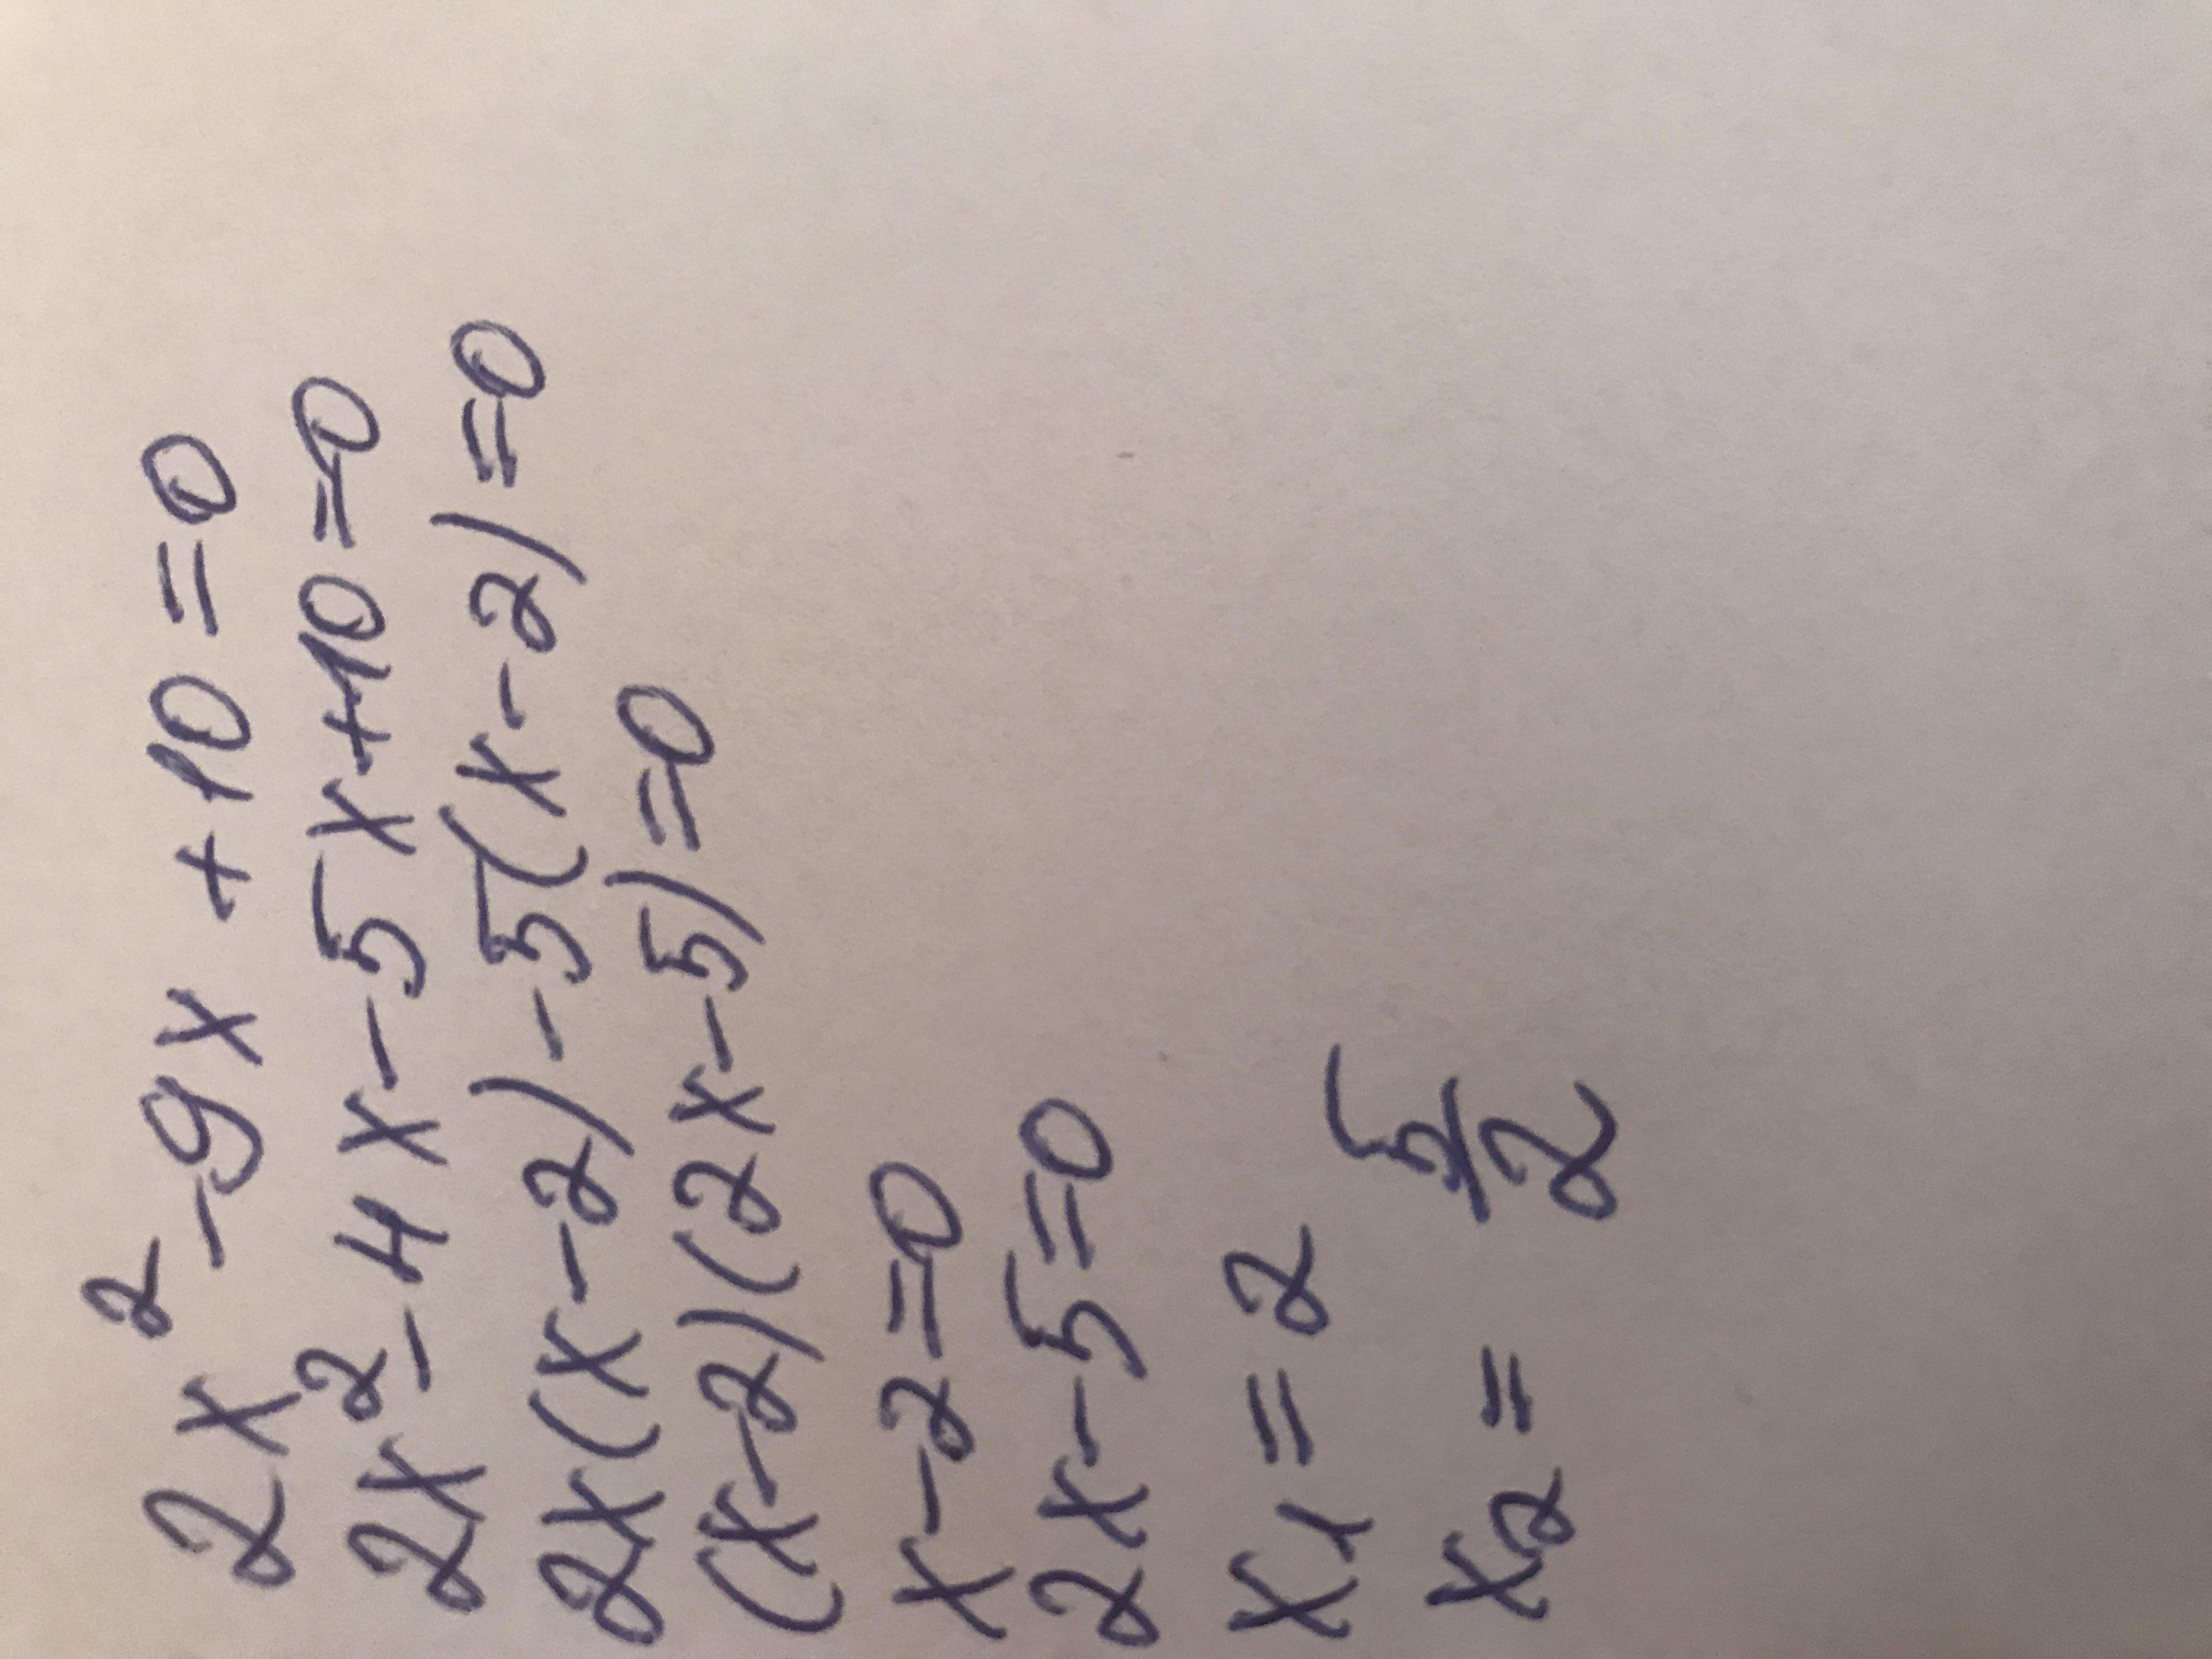 2x² - 9x + 10 = 0
2x² - 4x - 5x + 10 = 0
2x(x - 2) - 5(x - 2) = 0
(x - 2)(2x - 5) = 0
x - 2 = 0
2x - 5 = 0
x₁ = 2
x₂ = 5/2